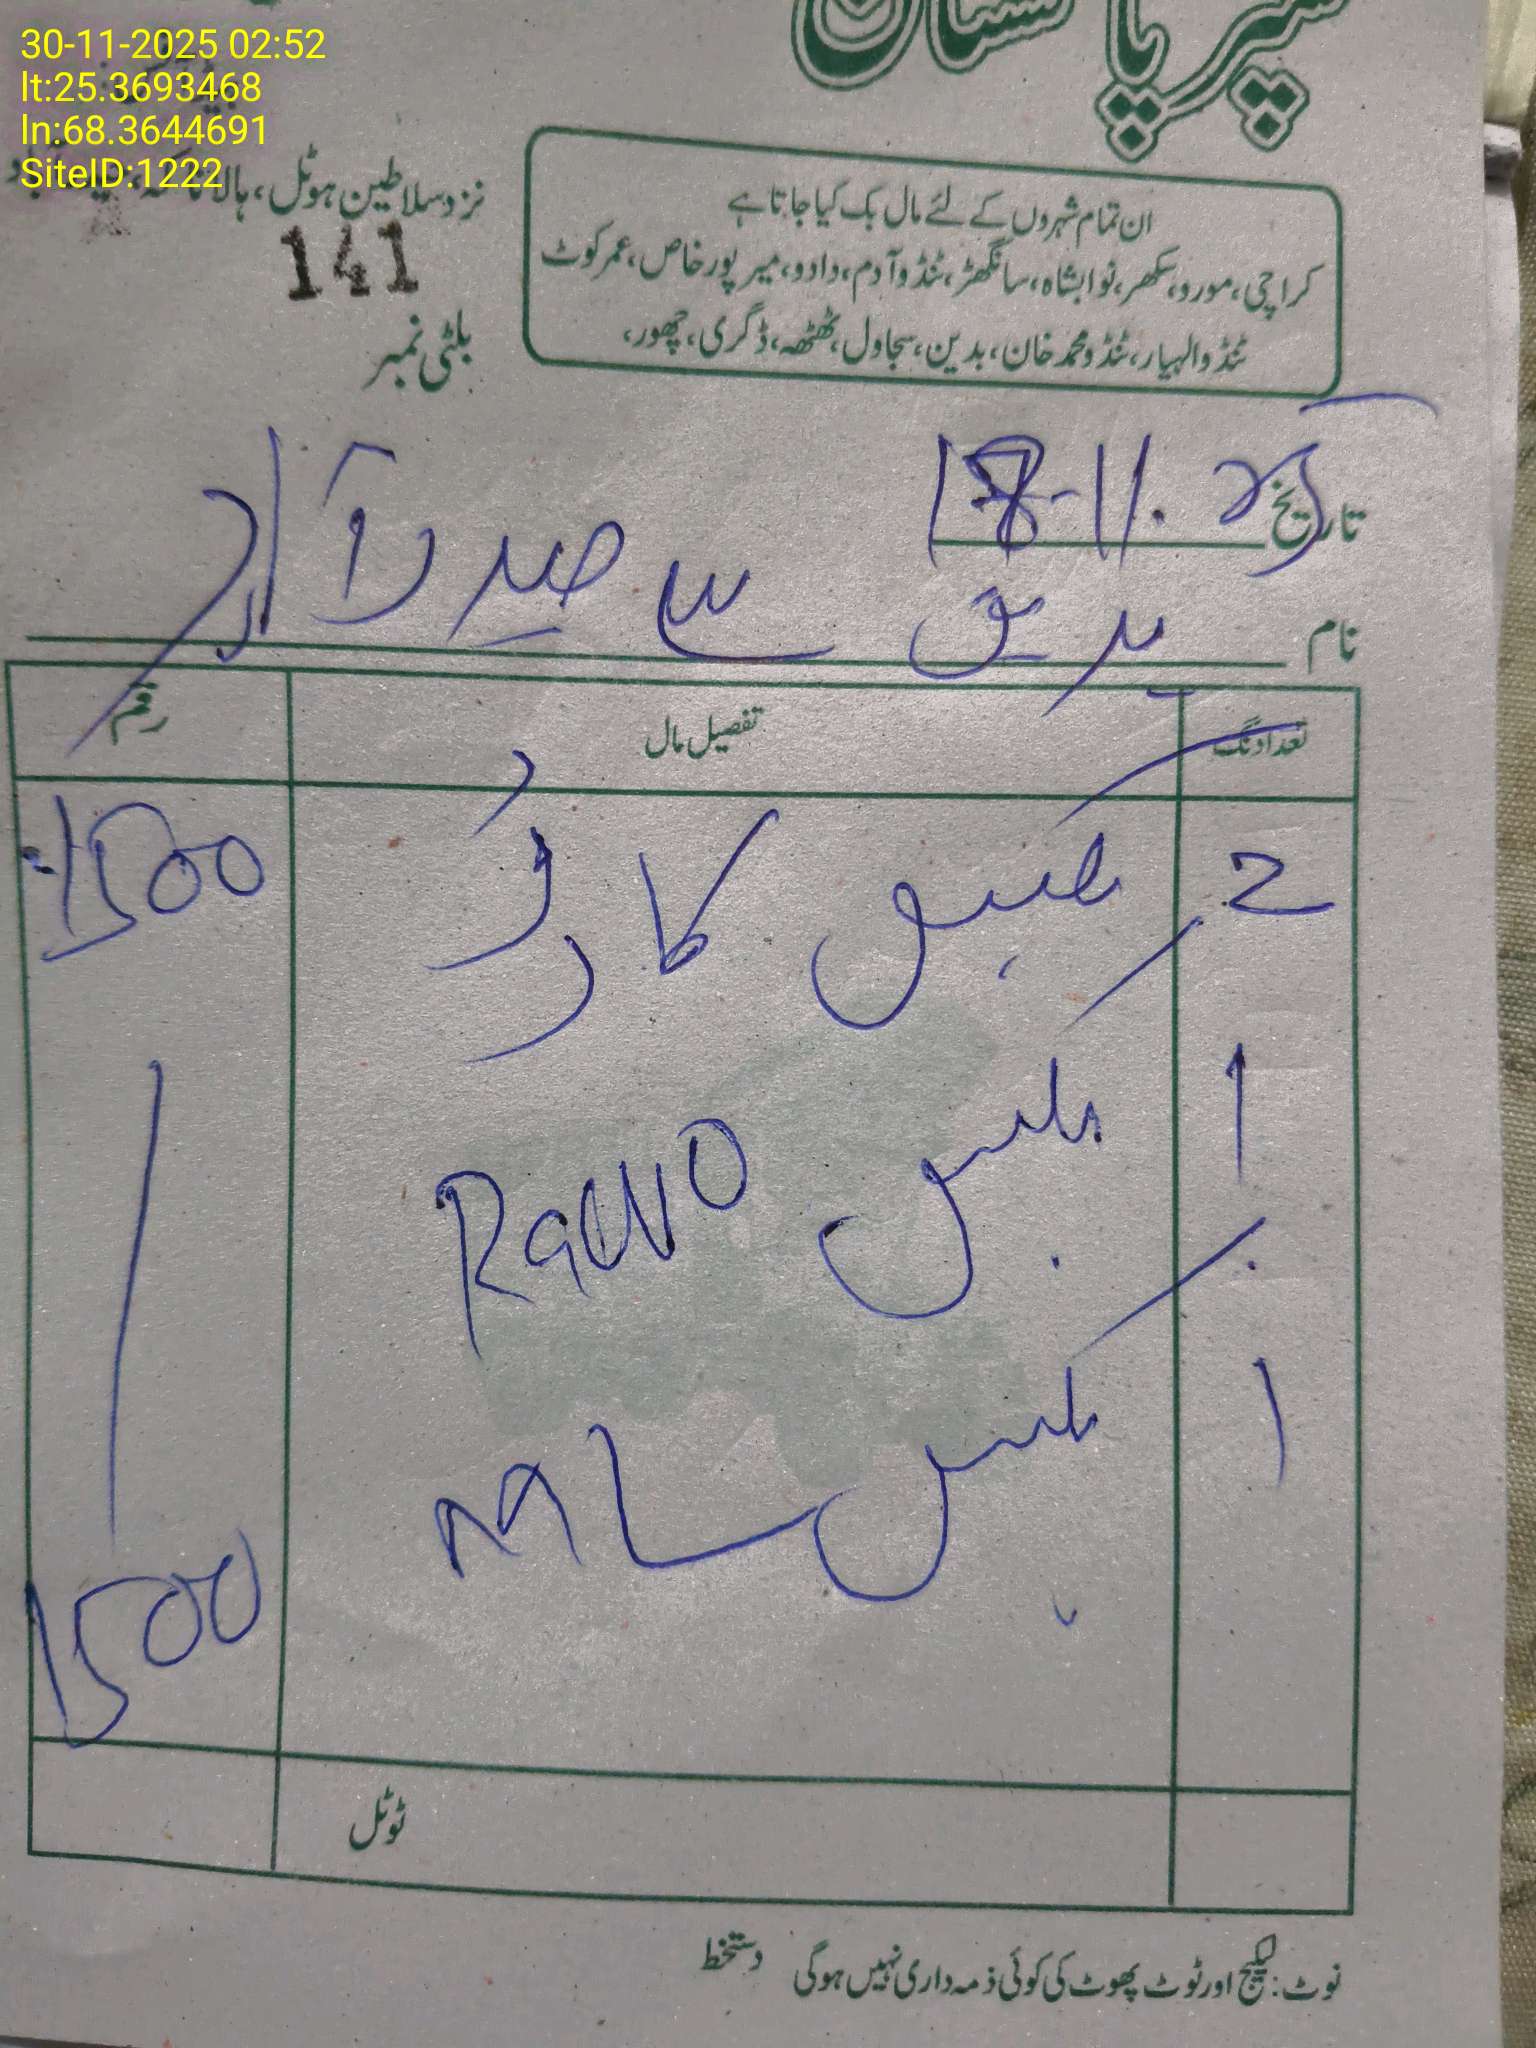 30-11-2025 02:52
lt:25.3693468
ln:68.3644691
SiteID:1222
سپر پاکستان
نزد سلاطین ہوٹل، ہالا ناکہ،
141
بلٹی نمبر
ان تمام شہروں کے لئے مال بک کیا جاتا ہے
کراچی، مورو، سکھر، نوابشاہ، سانگھڑ، ٹنڈوآدم، دادو، میرپورخاص، عمرکوٹ
ٹنڈوالہیار، ٹنڈومحمدخان، بدین، سجاول، ٹھٹھہ، ڈگری، چھور،
تاریخ 18-11-25
نام سے حیدرآباد
تعداد نگ تفصیل مال رقم
2 کارڈ 1500
1 بکس
1 بکس
1500
ٹوٹل
نوٹ: لیکیج اور ٹوٹ پھوٹ کی کوئی ذمہ داری نہیں ہوگی دستخط